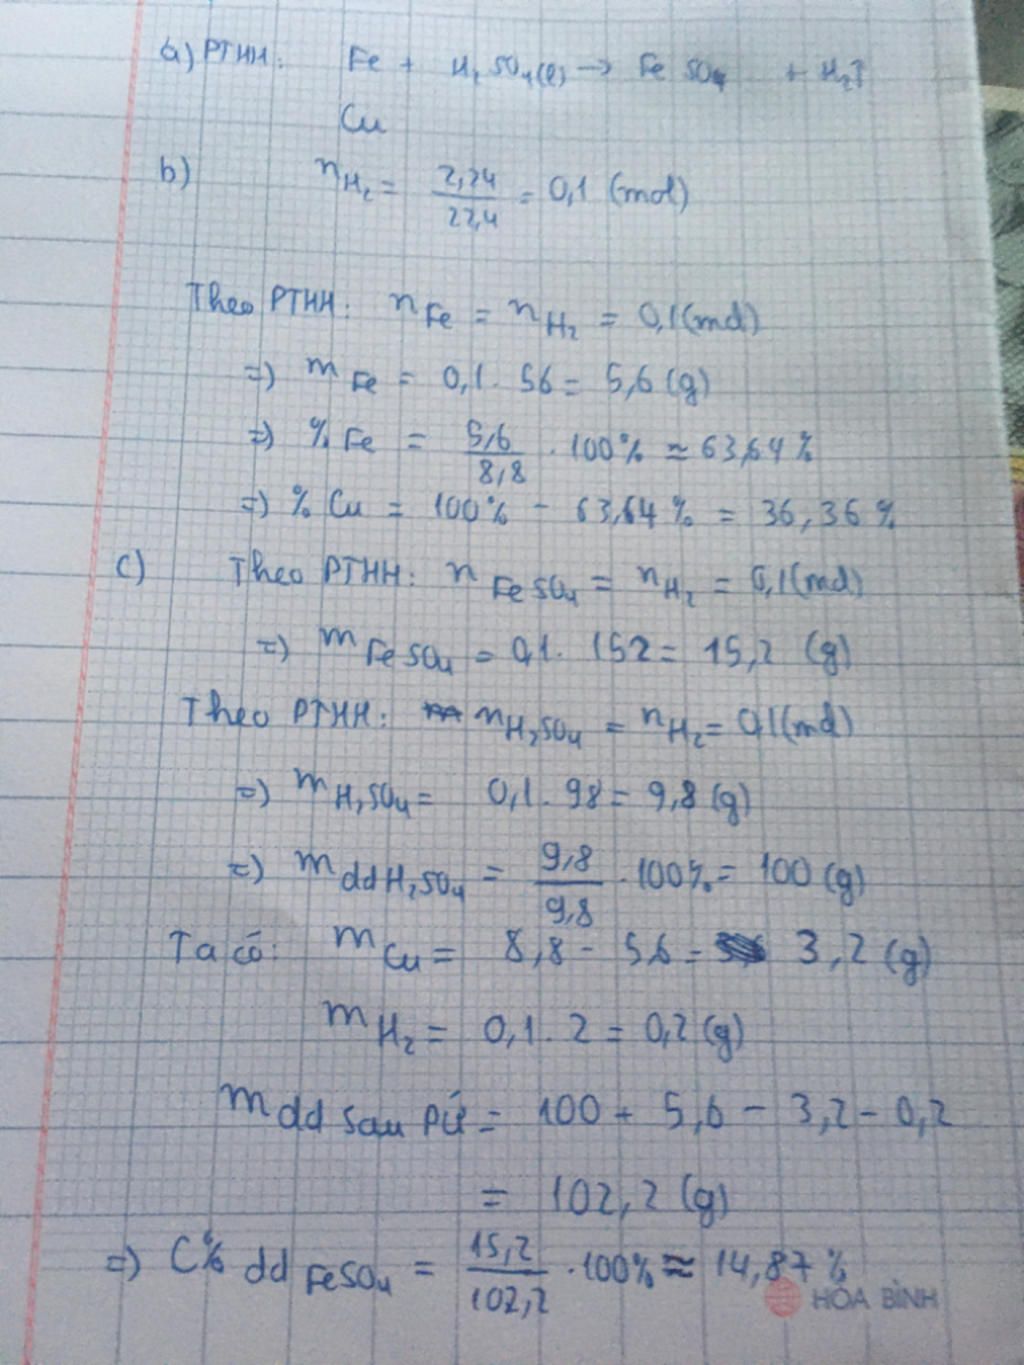 a) PTHH: Fe + H₂SO₄(l) → FeSO₄ + H₂↑
Cu
b) nH₂ = 2,24/22,4 = 0,1 (mol)
Theo PTHH: nFe = nH₂ = 0,1(mol)
=) mFe = 0,1 . 56 = 5,6 (g)
=) % Fe = 5,6/8,8 . 100% ≈ 63,64%
=) % Cu = 100% - 63,64% = 36,36%
c) Theo PTHH: nFeSO₄ = nH₂ = 0,1(mol)
=) mFeSO₄ = 0,1. 152 = 15,2 (g)
Theo PTHH: nH₂SO₄ = nH₂ = 0,1(mol)
=) mH₂SO₄ = 0,1. 98 = 9,8 (g)
=) mddH₂SO₄ = 9,8/9,8 . 100% = 100 (g)
Ta có: mCu = 8,8 - 5,6 = 3,2 (g)
mH₂ = 0,1. 2 = 0,2 (g)
mdd sau PƯ = 100 + 5,6 - 3,2 - 0,2
= 102,2 (g)
=) C% dd FeSO₄ = 15,2/102,2 . 100% ≈ 14,87%
HÒA BÌNH